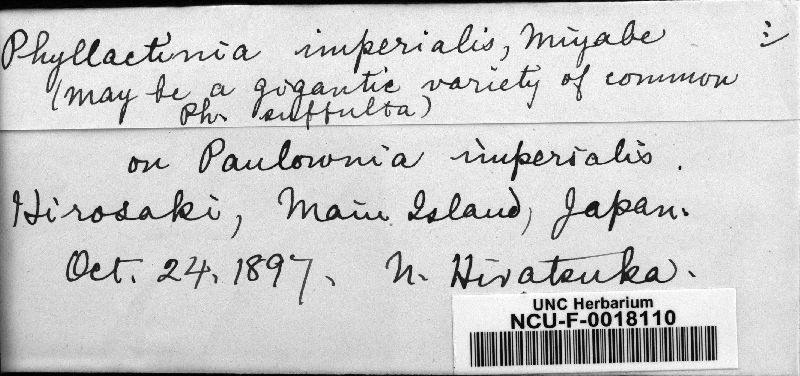 Phyllactinia imperialis, Miyabe
(may be a gigantic variety of common
Ph. suffulta)
on Paulownia imperialis.
Hirosaki, Main Island, Japan.
Oct. 24. 1897. N. Hiratsuka.
UNC Herbarium
NCU-F-0018110